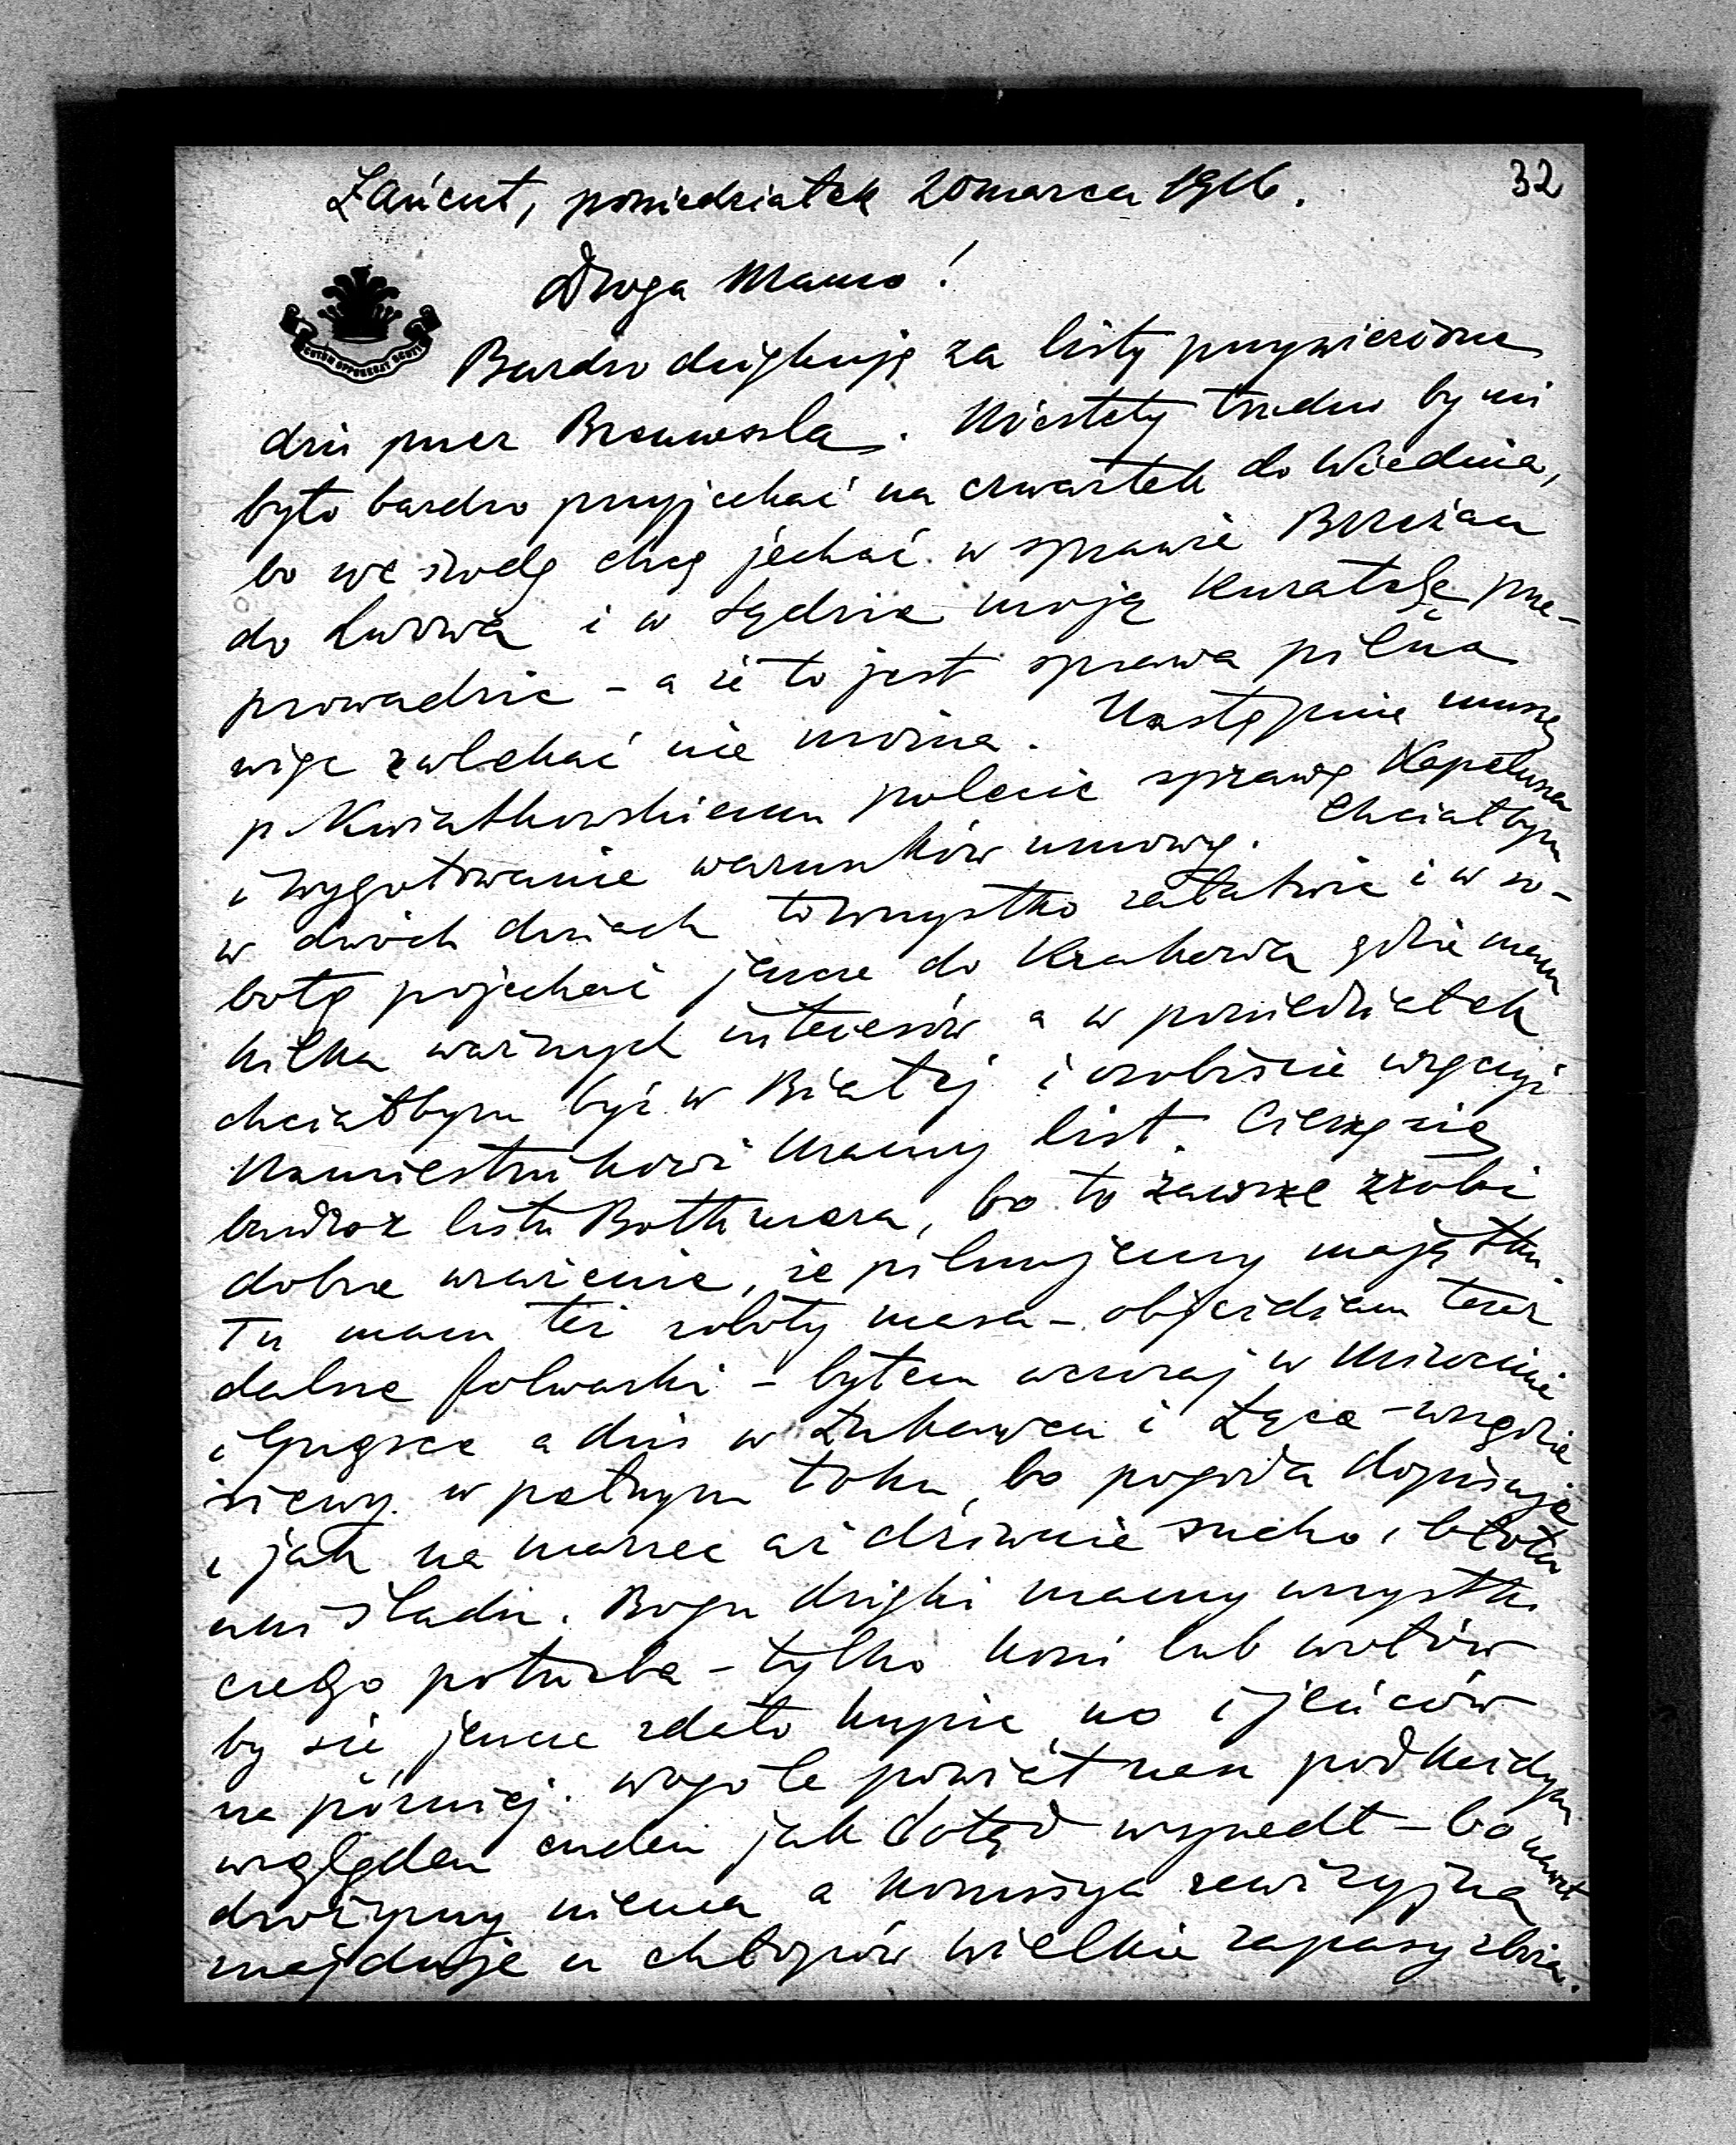 32
Łańcut, poniedziałek 20 marca 1916.
Droga Mamo!
Bardzo dziękuję za listy przywiezione
dziś przez . Niestety trudno by mi
było bardzo przyjechać na czwartek do Wiednia,
bo we środę chcę jechać w sprawie Brzeżan
do Lwowa i w Sądzie moją kuratelę prze-
prowadzić – a że to jest sprawa pilna
więc zwlekać nie można. Następnie muszę
p. Kwiatkowskiemu polecić sprawę Kapelusza
i wygotowanie warunków umowy. Chciałbym
w dwóch dniach to wszystko załatwić i w so-
botę pojechać jeszcze do Krakowa gdzie mam
kilka ważnych interesów a w poniedziałek
chciałbym być w Białej i osobiście wręczyć
Namiestnikowi Mamy list. Cieszę się
listu Bothmera, bo to zawsze zrobi
dobre wrażenie, że pilnujemy majątku.
Tu mam też roboty masa – objeżdżam teraz
dalsze folwarki – byłem wczoraj w Mirocinie
i a dziś w Żukowcu i Łące – wszędzie
siewy w pełnym toku, bo pogoda dopisuje
i jak na marzec aż dziwnie sucho i błota
ani śladu. Bogu dzięki mamy wszystko
czego potrzeba – tylko koni lub wołów
by się jeszcze zdało kupić no i jeńców
na później. Wogóle powiat nasz pod każdym
względem cudem jak dotąd wyszedł – bo nawet
drożyzny niema a komisya rewizyjna
znajduje u chłopów wielkie zapasy zboża.